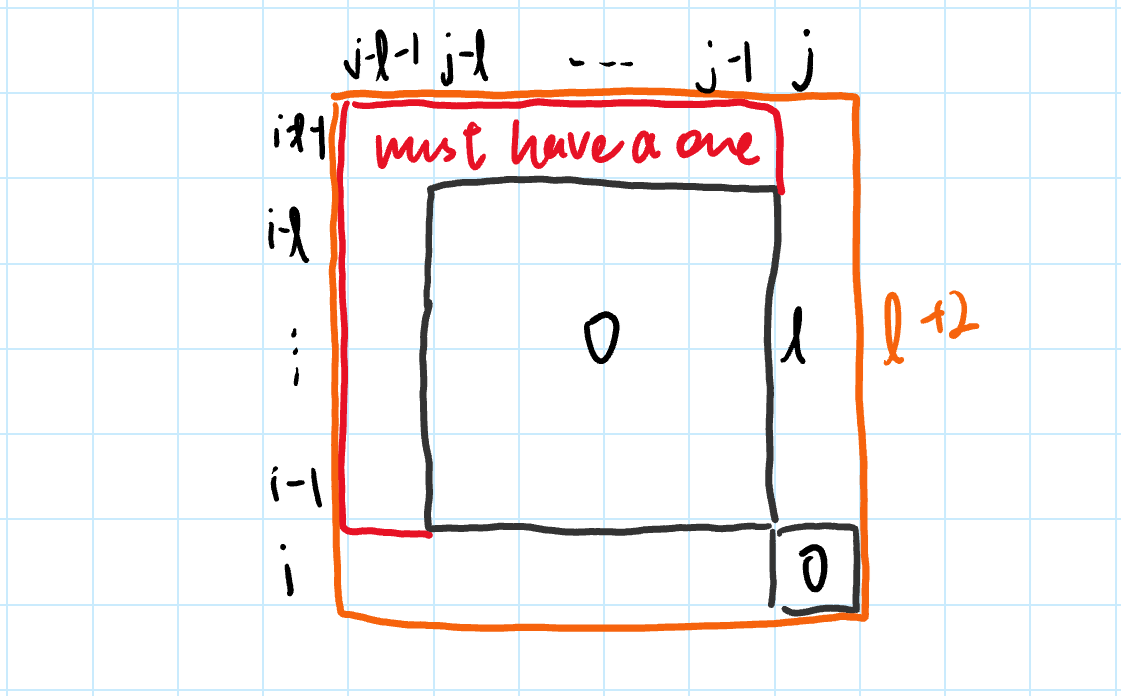 j-l-1 j-l --- j-1 j
i-l-1
must have a one
i-l
0
l
l+2
⋮
i-1
i
0